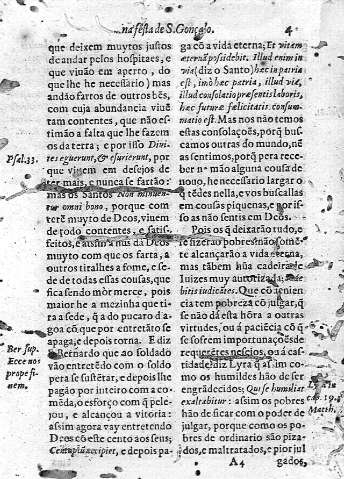 na festa de S. Gonçalo. 4
que deixem muytos justos
de andar pelos hospitaes, e
que viuão em aperto, do
que lhe he necessario) mas
andão fartos de outros bẽs,
com cuja abundancia viuẽ
tam contentes, que não es-
timão a falta que lhe fazem
os da terra; e por isso Diui-
tes eguerunt, & esurierunt, por
Psal.33.
que viuem em desejos de
ter mais, e nunca se fartão:
mas os Santos Non minuen-
tur omni bono, porque com
terẽ muyto de Deos, viuem
de todo contentes, e satis-
feitos, e assim a nus dá Deos
muyto com que os farta, a
outros tiralhes a fome, e se-
de de todas essas cousas, que
fica sendo mòr merce, pois
maior he a mezinha que ti-
ra a sede, q̃ a do pucaro d'a-
goa cõ que por entretãto se
apaga, e depois torna. E diz
Ber sup.
Ecce nos
prope fi-
nem.
Bernardo que ao soldado
vão entretẽdo com o soldo
pera se sustẽtar, e depois lhe
pagão por inteiro com a co-
mẽda, o esforço com q̃ pele-
jou, e alcançou a vitoria:
assim agora vay entretendo
Deos cõ este cento aos seus;
Centuplũ accipiet, e depois pa-
ga cõ a vida eterna; Et vitam
æternã possidebit. Illud enim in
via (diz o Santo) hæc in patria
est, imò hæc patria, illud via,
illud consolatio præsentis laboris,
hæc futuræ fælicitatis consum-
matio est. Mas nos não temos
estas consolações, porq̃ bus-
camos outras do mundo, nẽ
as sentimos, porq̃ pera rece-
ber na mão algũa cousa de
nouo, he necessario largar o
q̃ tẽdes nella, e vos buscallas
em cousas piquenas, e por is-
so as não sentis em Deos.
Pois os q̃ deixarão tudo, e
se fizerão pobres não sómẽ-
te alcançarão a vida eterna,
mas tãbem hũa cadeira de
Juizes muy autorizada;
iudicãtes. Que cõuenien-
cia tem pobreza cõ julgar, q̃
se não dá esta hõra a outras
virtudes, ou á paciẽcia cõ q̃
se sofrem importunações de
requerẽtes nescios, ou á cas-
tidade? diz Lyra q̃ assim co-
mo os humildes hão de ser
Lyra in
cap. 19.
Matth.
engrãdecidos; Qui se humiliat
exaltabitur: assim os pobres
hão de ficar com o poder de
julgar, porque como os po-
bres de ordinario são piza-
dos, e maltratados, e pior jul
A 4 gados,